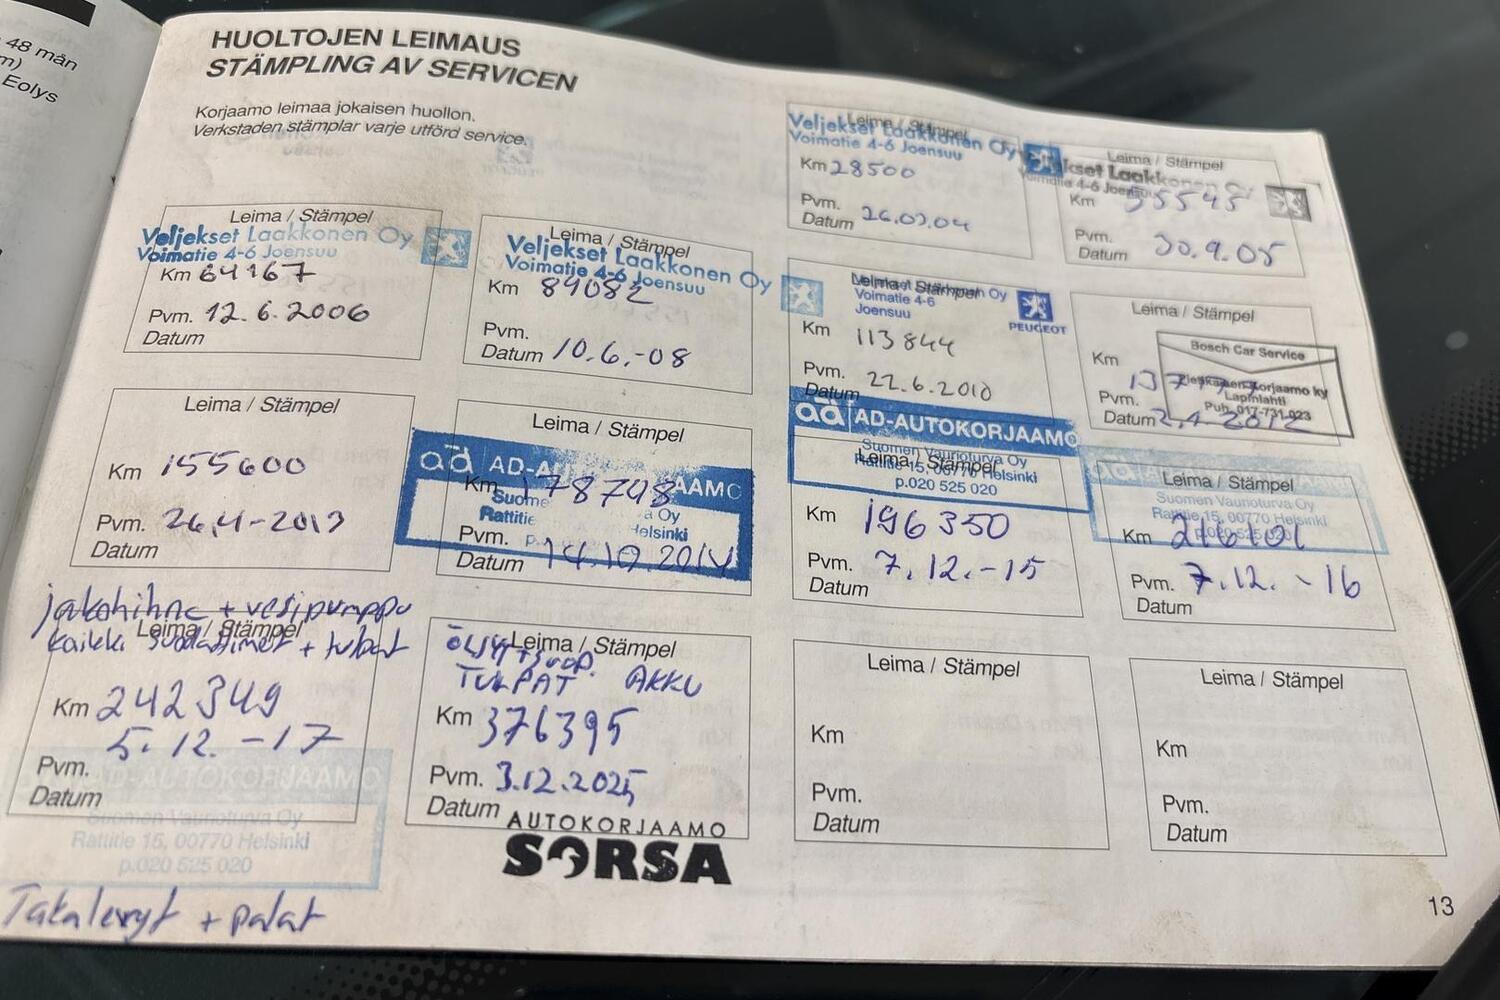 48 mån
m)
Eolys
HUOLTOJEN LEIMAUS
STÄMPLING AV SERVICEN
Korjaamo leimaa jokaisen huollon.
Verkstaden stämplar varje utförd service.
Leima / Stämpel
Veljekset Laakkonen Oy
Voimatie 4-6 Joensuu
Km 28500
Pvm.
Datum 26.03.04
Leima / Stämpel
kset Laakkonen Oy
Voimatie 4-6 Joensuu
Km 55545
Pvm.
Datum 30.9.05
Leima / Stämpel
Veljekset Laakkonen Oy
Voimatie 4-6 Joensuu
Km 64167
Pvm. 12.6.2006
Datum
Leima / Stämpel
Veljekset Laakkonen Oy
Voimatie 4-6 Joensuu
Km 89082
Pvm.
Datum 10.6.-08
Leima / Stämpel
Voimatie 4-6
Joensuu
PEUGEOT
Km 113844
Pvm. 22.6.2010
Datum
Leima / Stämpel
Bosch Car Service
Korjaamo ky
Lapinlahti
Puh. 017-731 023
Km
Pvm.
Datum 2.4.2012
Leima / Stämpel
Km 155600
Pvm. 26.4-2013
Datum
Leima / Stämpel
ad AD-AUTOKORJAAMO
Km 178748
Helsinki
Pvm.
Datum 14.10.2014
ad AD-AUTOKORJAAMO
Suomen Vaurioturva Oy
Leima / Stämpel
Rattitie 15, 00770 Helsinki
p.020 525 020
Km 196350
Pvm. 7.12.-15
Datum
Leima / Stämpel
Suomen Vaurioturva Oy
Rattitie 15, 00770 Helsinki
p.020 525 020
Km 216101
Pvm. 7.12.-16
Datum
jakohihna + vesipumppu
Leima / Stämpel
kaikki suodattimet + tulpat
Km 242349
5.12.-17
Pvm.
Datum
AD-AUTOKORJAAMO
Suomen Vaurioturva Oy
Rattitie 15, 00770 Helsinki
p.020 525 020
Takalevyt + palat
Leima / Stämpel
ÖLJYT+SUOD.
TULPAT AKKU
Km 376395
Pvm. 3.12.2025
Datum
AUTOKORJAAMO
SORSA
Leima / Stämpel
Km
Pvm.
Datum
Leima / Stämpel
Km
Pvm.
Datum
13